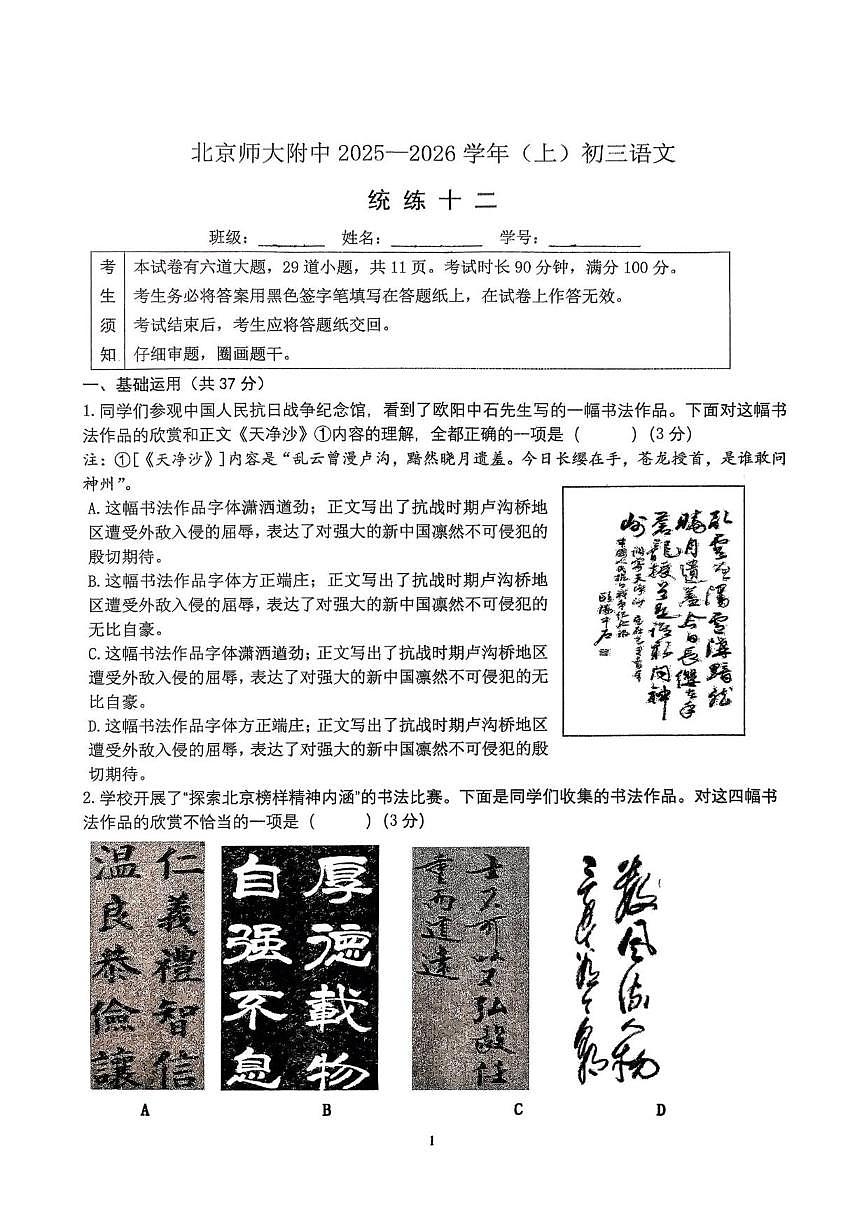 北京师大附中 2025—2026 学年（上）初三语文
统 练 十 二
班级：________ 姓名：___________ 学号：___________
考 生 须 知
本试卷有六道大题，29 道小题，共 11 页。考试时长 90 分钟，满分 100 分。
考生务必将答案用黑色签字笔填写在答题纸上，在试卷上作答无效。
考试结束后，考生应将答题纸交回。
仔细审题，圈画题干。
一、基础运用（共 37 分）
1. 同学们参观中国人民抗日战争纪念馆，看到了欧阳中石先生写的一幅书法作品。下面对这幅书
法作品的欣赏和正文《天净沙》①内容的理解，全都正确的一项是（ ）(3 分)
注：①[《天净沙》]内容是“乱云曾漫卢沟，黯然晓月遗羞。今日长缨在手，苍龙授首，是谁敢问
神州”。
A. 这幅书法作品字体潇洒遒劲；正文写出了抗战时期卢沟桥地
区遭受外敌入侵的屈辱，表达了对强大的新中国凛然不可侵犯的
殷切期待。
B. 这幅书法作品字体方正端庄；正文写出了抗战时期卢沟桥地
区遭受外敌入侵的屈辱，表达了对强大的新中国凛然不可侵犯的
无比自豪。
C. 这幅书法作品字体潇洒遒劲；正文写出了抗战时期卢沟桥地区
遭受外敌入侵的屈辱，表达了对强大的新中国凛然不可侵犯的无
比自豪。
D. 这幅书法作品字体方正端庄；正文写出了抗战时期卢沟桥地区
遭受外敌入侵的屈辱，表达了对强大的新中国凛然不可侵犯的殷
切期待。
2. 学校开展了“探索北京榜样精神内涵”的书法比赛。下面是同学们收集的书法作品。对这四幅书
法作品的欣赏不恰当的一项是（ ）(3 分)
仁義禮智信
温良恭儉讓
厚德載物
自强不息
士不可以不弘毅任
重而道遠
數風流人物
A B C D
1